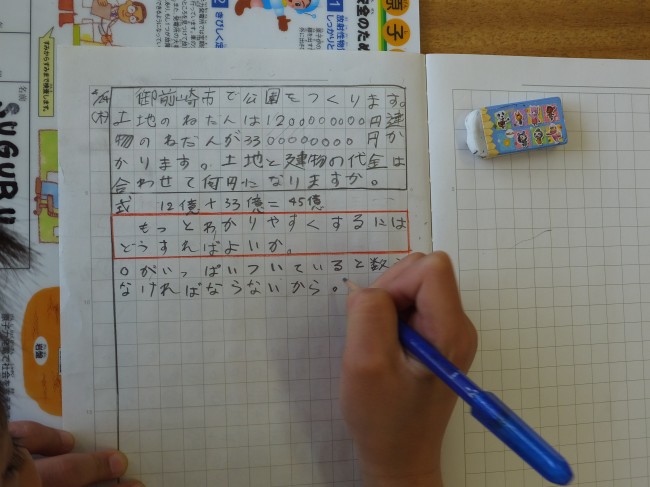 原子
安全のため
1 放射性物
しっかりと
2 きびしく
すみからすみまで検査します。
名前
SUGURU
岩盤
(木)
御前崎市で公園をつくります。
土地のねだんは1200000000円建
物のねだんが3300000000円か
かります。土地と建物の代金は
合わせて何円になりますか。
式 12億+33億=45億
もっとわかりやすくするには
どうすればよいか。
0がいっぱいついていると数え
なければならないから。